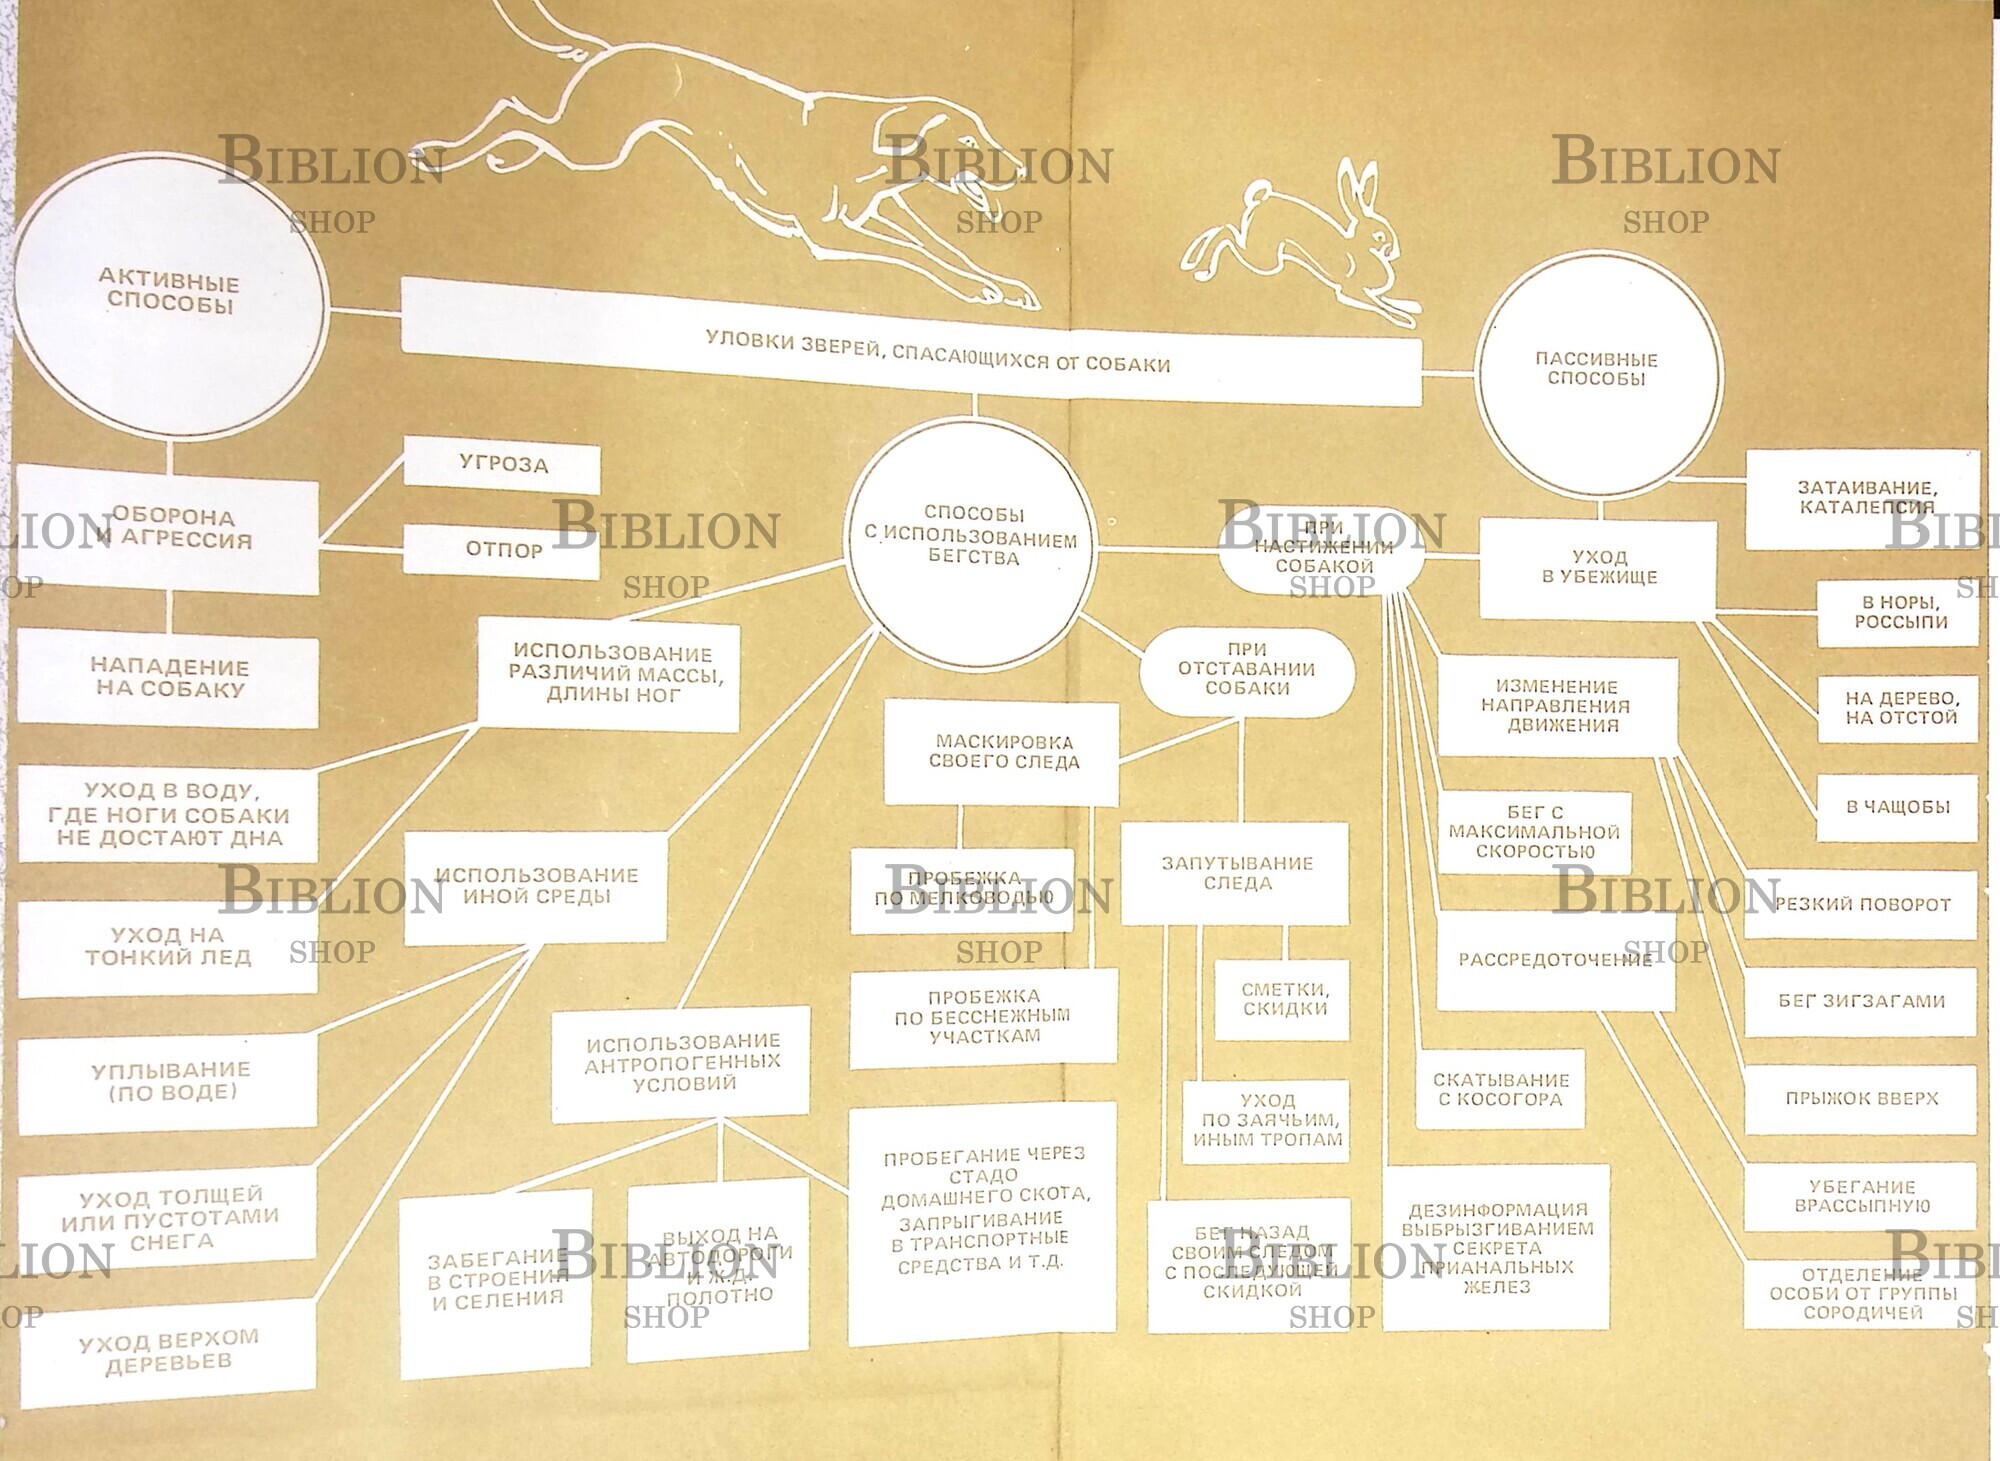 АКТИВНЫЕ
СПОСОБЫ
УЛОВКИ ЗВЕРЕЙ, СПАСАЮЩИХСЯ ОТ СОБАКИ
ПАССИВНЫЕ
СПОСОБЫ
ОБОРОНА
И АГРЕССИЯ
УГРОЗА
ОТПОР
НАПАДЕНИЕ
НА СОБАКУ
СПОСОБЫ
С ИСПОЛЬЗОВАНИЕМ
БЕГСТВА
ПРИ
НАСТИЖЕНИИ
СОБАКОЙ
УХОД
В УБЕЖИЩЕ
ЗАТАИВАНИЕ,
КАТАЛЕПСИЯ
В НОРЫ,
РОССЫПИ
НА ДЕРЕВО,
НА ОТСТОЙ
В ЧАЩОБЫ
ИСПОЛЬЗОВАНИЕ
РАЗЛИЧИЙ МАССЫ,
ДЛИНЫ НОГ
УХОД В ВОДУ,
ГДЕ НОГИ СОБАКИ
НЕ ДОСТАЮТ ДНА
УХОД НА
ТОНКИЙ ЛЕД
ИСПОЛЬЗОВАНИЕ
ИНОЙ СРЕДЫ
УПЛЫВАНИЕ
(ПО ВОДЕ)
УХОД ТОЛЩЕЙ
ИЛИ ПУСТОТАМИ
СНЕГА
УХОД ВЕРХОМ
ДЕРЕВЬЕВ
ИСПОЛЬЗОВАНИЕ
АНТРОПОГЕННЫХ
УСЛОВИЙ
ЗАБЕГАНИЕ
В СТРОЕНИЯ
И СЕЛЕНИЯ
ВЫХОД НА
АВТОДОРОГИ
И Ж.Д.
ПОЛОТНО
ПРОБЕГАНИЕ ЧЕРЕЗ
СТАДО
ДОМАШНЕГО СКОТА,
ЗАПРЫГИВАНИЕ
В ТРАНСПОРТНЫЕ
СРЕДСТВА И Т.Д.
ПРИ
ОТСТАВАНИИ
СОБАКИ
МАСКИРОВКА
СВОЕГО СЛЕДА
ПРОБЕЖКА
ПО МЕЛКОВОДЬЮ
ПРОБЕЖКА
ПО БЕССНЕЖНЫМ
УЧАСТКАМ
ЗАПУТЫВАНИЕ
СЛЕДА
СМЕТКИ,
СКИДКИ
УХОД
ПО ЗАЯЧЬИМ,
ИНЫМ ТРОПАМ
БЕГ НАЗАД
СВОИМ СЛЕДОМ
С ПОСЛЕДУЮЩЕЙ
СКИДКОЙ
ИЗМЕНЕНИЕ
НАПРАВЛЕНИЯ
ДВИЖЕНИЯ
БЕГ С
МАКСИМАЛЬНОЙ
СКОРОСТЬЮ
РАССРЕДОТОЧЕНИЕ
СКАТЫВАНИЕ
С КОСОГОРА
ДЕЗИНФОРМАЦИЯ
ВЫБРЫЗГИВАНИЕМ
СЕКРЕТА
ПРИАНАЛЬНЫХ
ЖЕЛЕЗ
РЕЗКИЙ ПОВОРОТ
БЕГ ЗИГЗАГАМИ
ПРЫЖОК ВВЕРХ
УБЕГАНИЕ
ВРАССЫПНУЮ
ОТДЕЛЕНИЕ
ОСОБИ ОТ ГРУППЫ
СОРОДИЧЕЙ
BIBLION
SHOP
BIBLION
SHOP
BIBLION
SHOP
BIBLION
SHOP
BIBLION
SHOP
BIBLION
SHOP
BIBLION
SHOP
BIBLION
SHOP
BIBLION
SHOP
BIBLION
SHOP